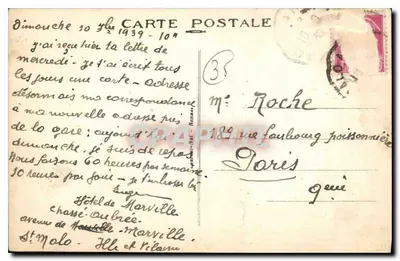 CARTE POSTALE
Dimanche 10 Xbre 1939 - 10H
j'ai reçu hier ta lettre de
mercredi - je t'ai écrit tous
les jours une carte - adresse
désormais ma correspondance
à ma nouvelle adresse près
de la gare; aujourd'hui
dimanche, je suis de repos
nous faisons 60 heures par semaine
10 heures par jour - je t'embrasse
Hôtel de Marville
chassé Aubrée
avenue de Marville
St Malo Ille et Vilaine
35
Me Roche
189 rue faubourg poissonnière
Paris
9ème